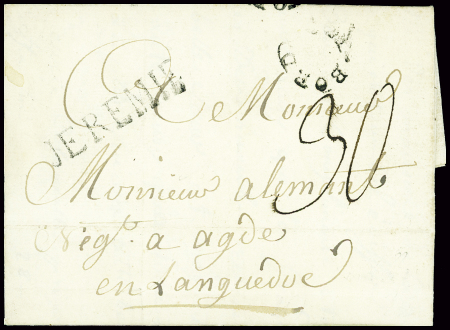 JEREMIE
A Monsieur
30
Monsieur alemant
Negt. a agde
en Languedoc